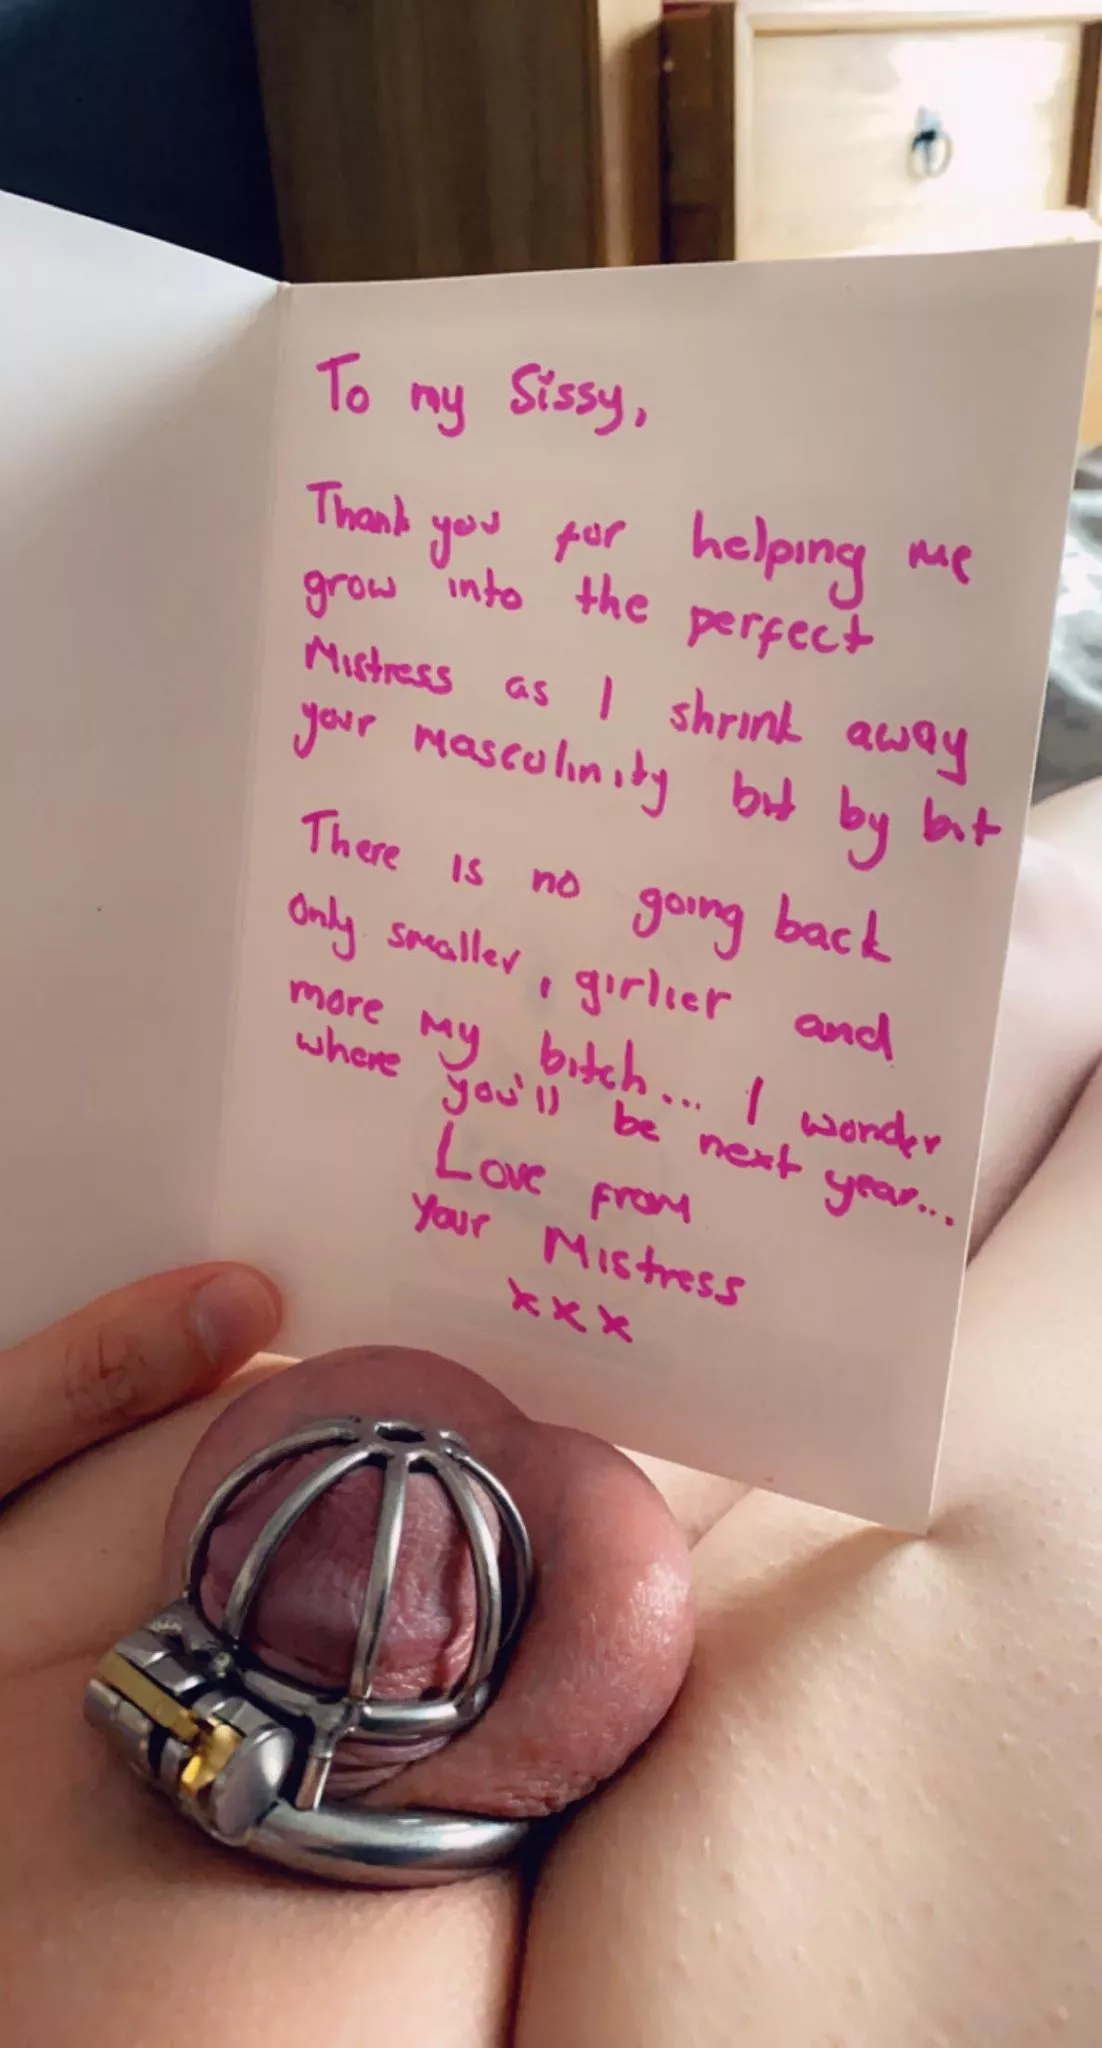 To my Sissy,
Thank you for helping me
grow into the perfect
Mistress as I shrink away
your masculinity bit by bit
There is no going back
only smaller, girlier and
more my bitch... I wonder
where you'll be next year...
Love from
Your Mistress
xxx